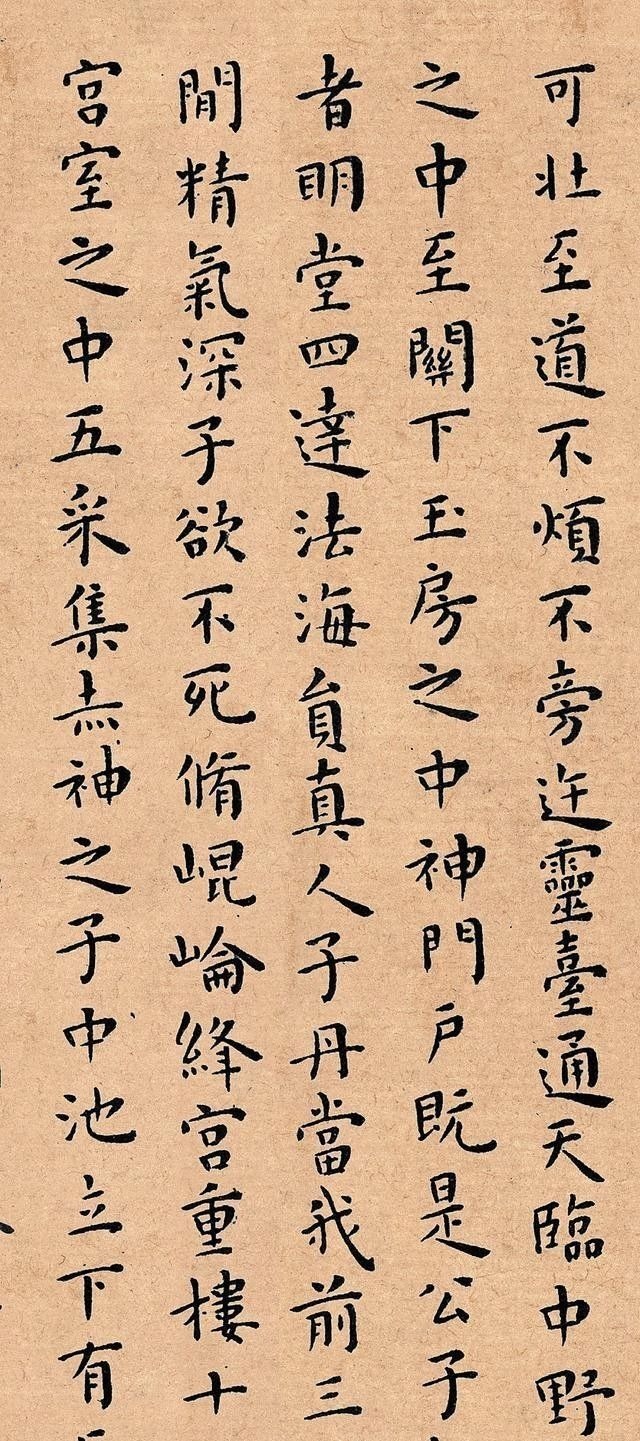 可壮至道不煩不旁迕靈臺通天臨中野
之中至關下玉房之中神門戶既是公子
者明堂四達法海員真人子丹當我前三
間精氣深子欲不死脩崐崘絳宮重樓十
宮室之中五采集赤神之子中池立下有